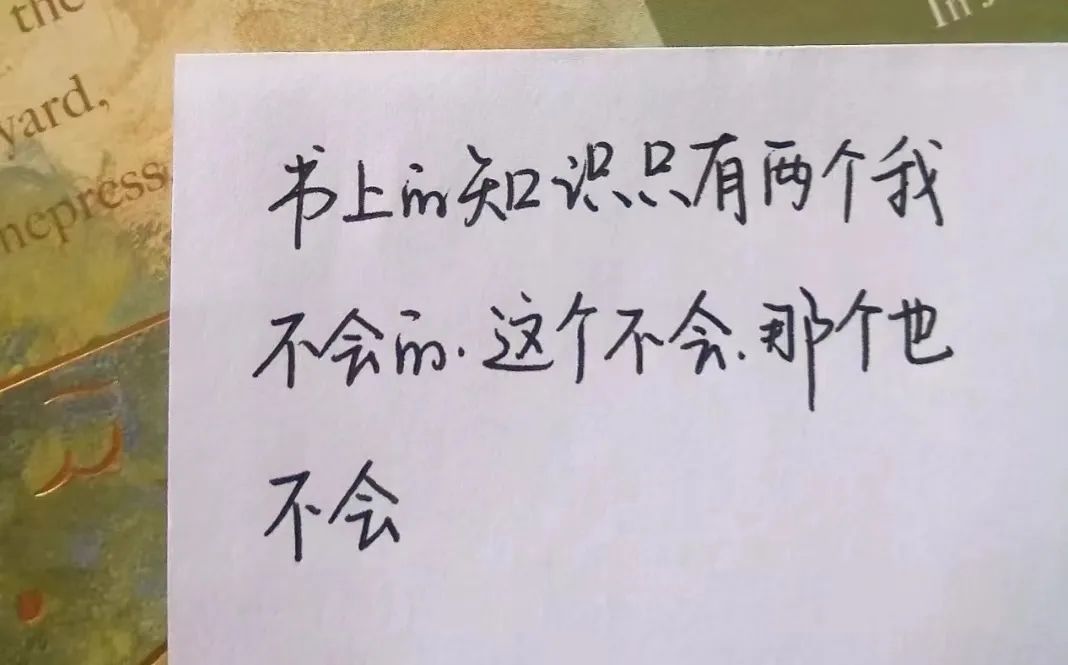 the
yard,
ncpress
In
书上的知识只有两个我
不会的.这个不会.那个也
不会